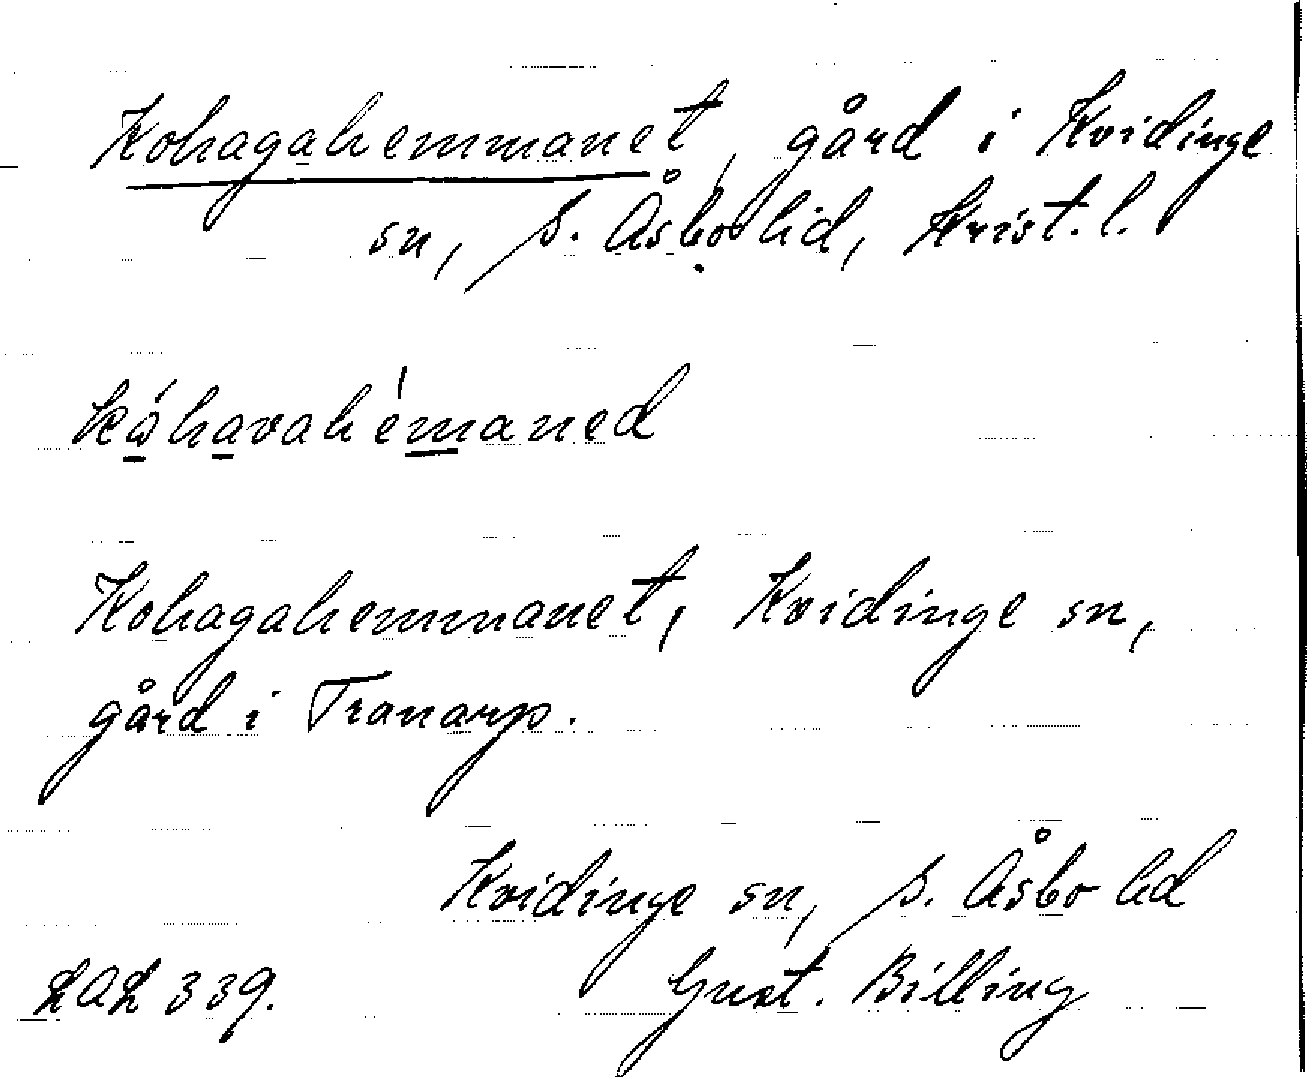 Kohagahemmanet, gård i Kvidinge
sn, S. Åsbo hd, Krist. l.
Kohagahemmanet, Kvidinge sn,
gård i Tranarp.
Kvidinge sn, S. Åsbo hd
LAL 339. Gust. Billing